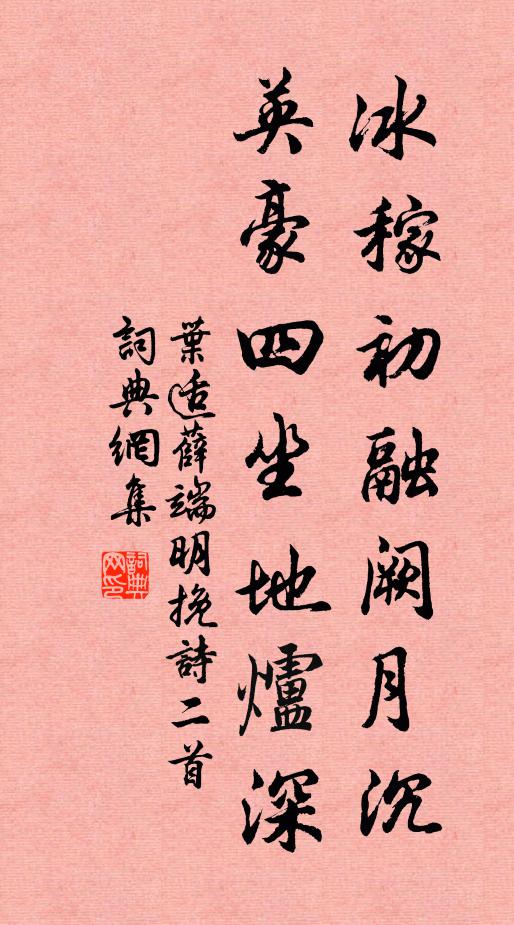 冰稼初融阙月沉
英豪四坐地爐深
葉适薛端明挽詩二首
詞典網集
詞典網印